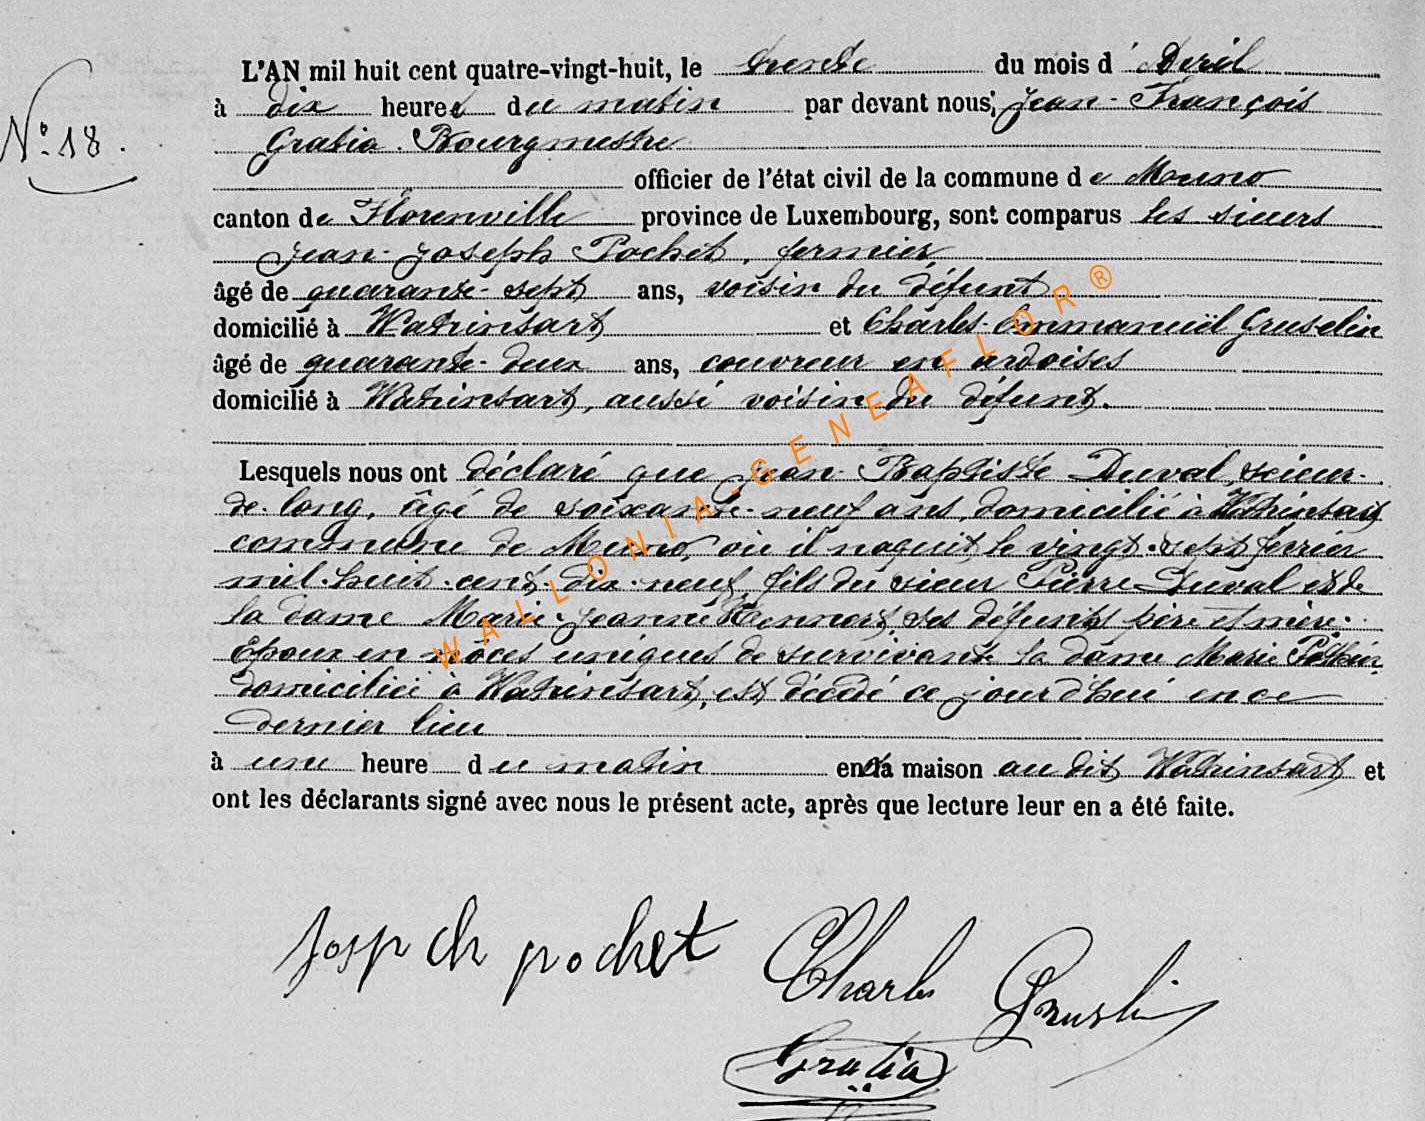 N° 18.
L'AN mil huit cent quatre-vingt-huit, le trente du mois d' Avril
à dix heures du matin par devant nous, Jean-François
Gratia. Bourgmestre
officier de l'état civil de la commune de Muno
canton de Florenville province de Luxembourg, sont comparus les sieurs
Jean-Joseph Pochet, fermier
âgé de quarante-sept ans, voisin du défunt
domicilié à Watrinsart et Charles-Emmanuël Gruselin
âgé de quarante-deux ans, couvreur en ardoises
domicilié à Watrinsart, aussi voisin du défunt.
Lesquels nous ont déclaré que Jean-Baptiste Duval, scieur-
de-long, âgé de soixante-neuf ans, domicilié à Watrinsart
commune de Muno, où il naquit le vingt-sept février
mil-huit-cent-dix-neuf, fils du sieur Pierre Duval et de
la dame Marie-Jeanne Hennart, ses défunts père et mère.
Epoux en nôces uniques de survivante la dame Marie
domiciliée à Watrinsart, est décédé ce jourd'hui en ce
dernier lieu
à une heure du matin en la maison au dit Watrinsart et
ont les déclarants signé avec nous le présent acte, après que lecture leur en a été faite.
Josp ch pochet Charles Gruslin
Gratia
WALLONIA-GENEAFLOR®